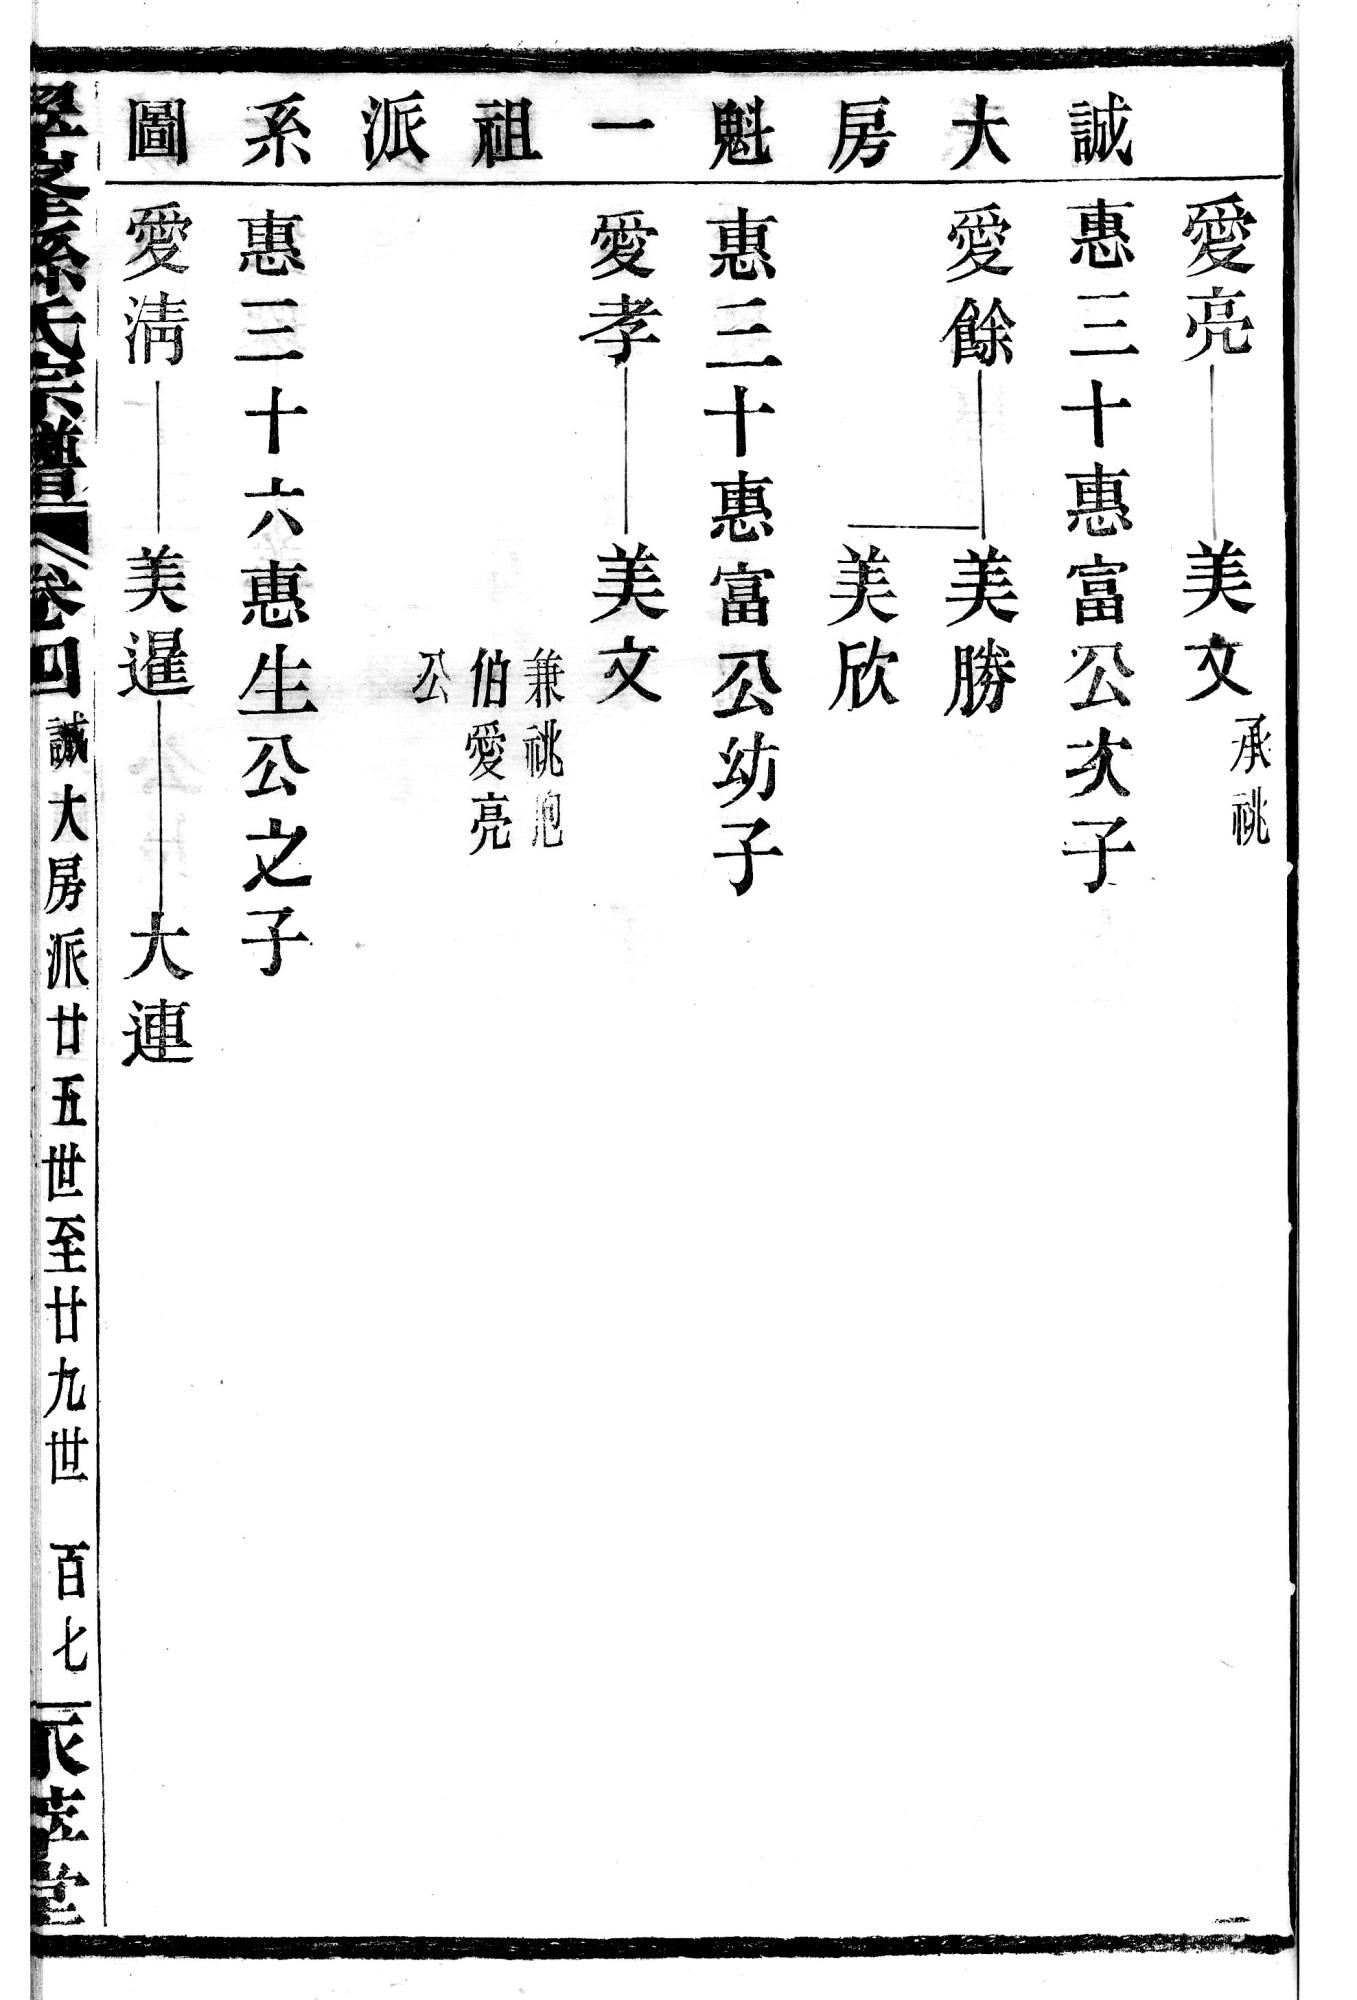 誠大房魁一祖派系圖
愛亮 美文 承祧
惠三十惠富公次子
愛餘 美勝
美欣
惠三十惠富公幼子
愛孝 美文
兼祧胞
伯愛亮
公
惠三十六惠生公之子
愛淸 美暹 大連
孫氏宗譜 卷四 誠大房派廿五世至廿九世 百七 堂